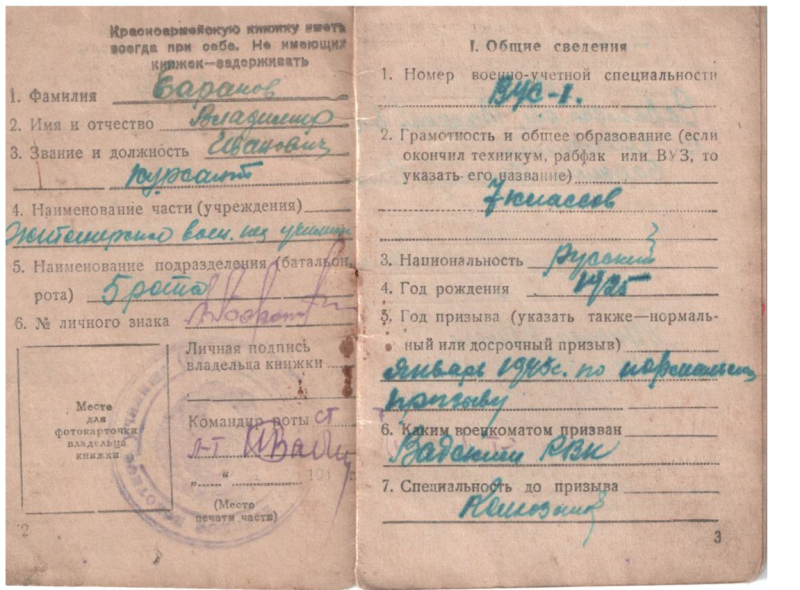 Красноармейскую книжку иметь
всегда при себе. Не имеющих
книжек—задерживать
1. Фамилия Баранов
2. Имя и отчество Владимир
3. Звание и должность Иванович
курсант
4. Наименование части (учреждения)
Житомирское воен. пех училищ
5. Наименование подразделения (батальон,
рота) 5 рота
6. № личного знака
Личная подпись
владельца книжки
Место
для
фотокарточки
владельца
книжки
Командир роты ст
л-т
„ “ 191
(Место
печати части)
2
I. Общие сведения
1. Номер военно-учетной специальности
ВУС-1.
2. Грамотность и общее образование (если
окончил техникум, рабфак или ВУЗ, то
указать его название)
7 классов
3. Национальность русский
4. Год рождения 1925
5. Год призыва (указать также—нормаль-
ный или досрочный призыв)
Январь 1943 г. по нормальному
призыву
6. Каким военкоматом призван
Вадским РВК
7. Специальность до призыва
Колхозник
3